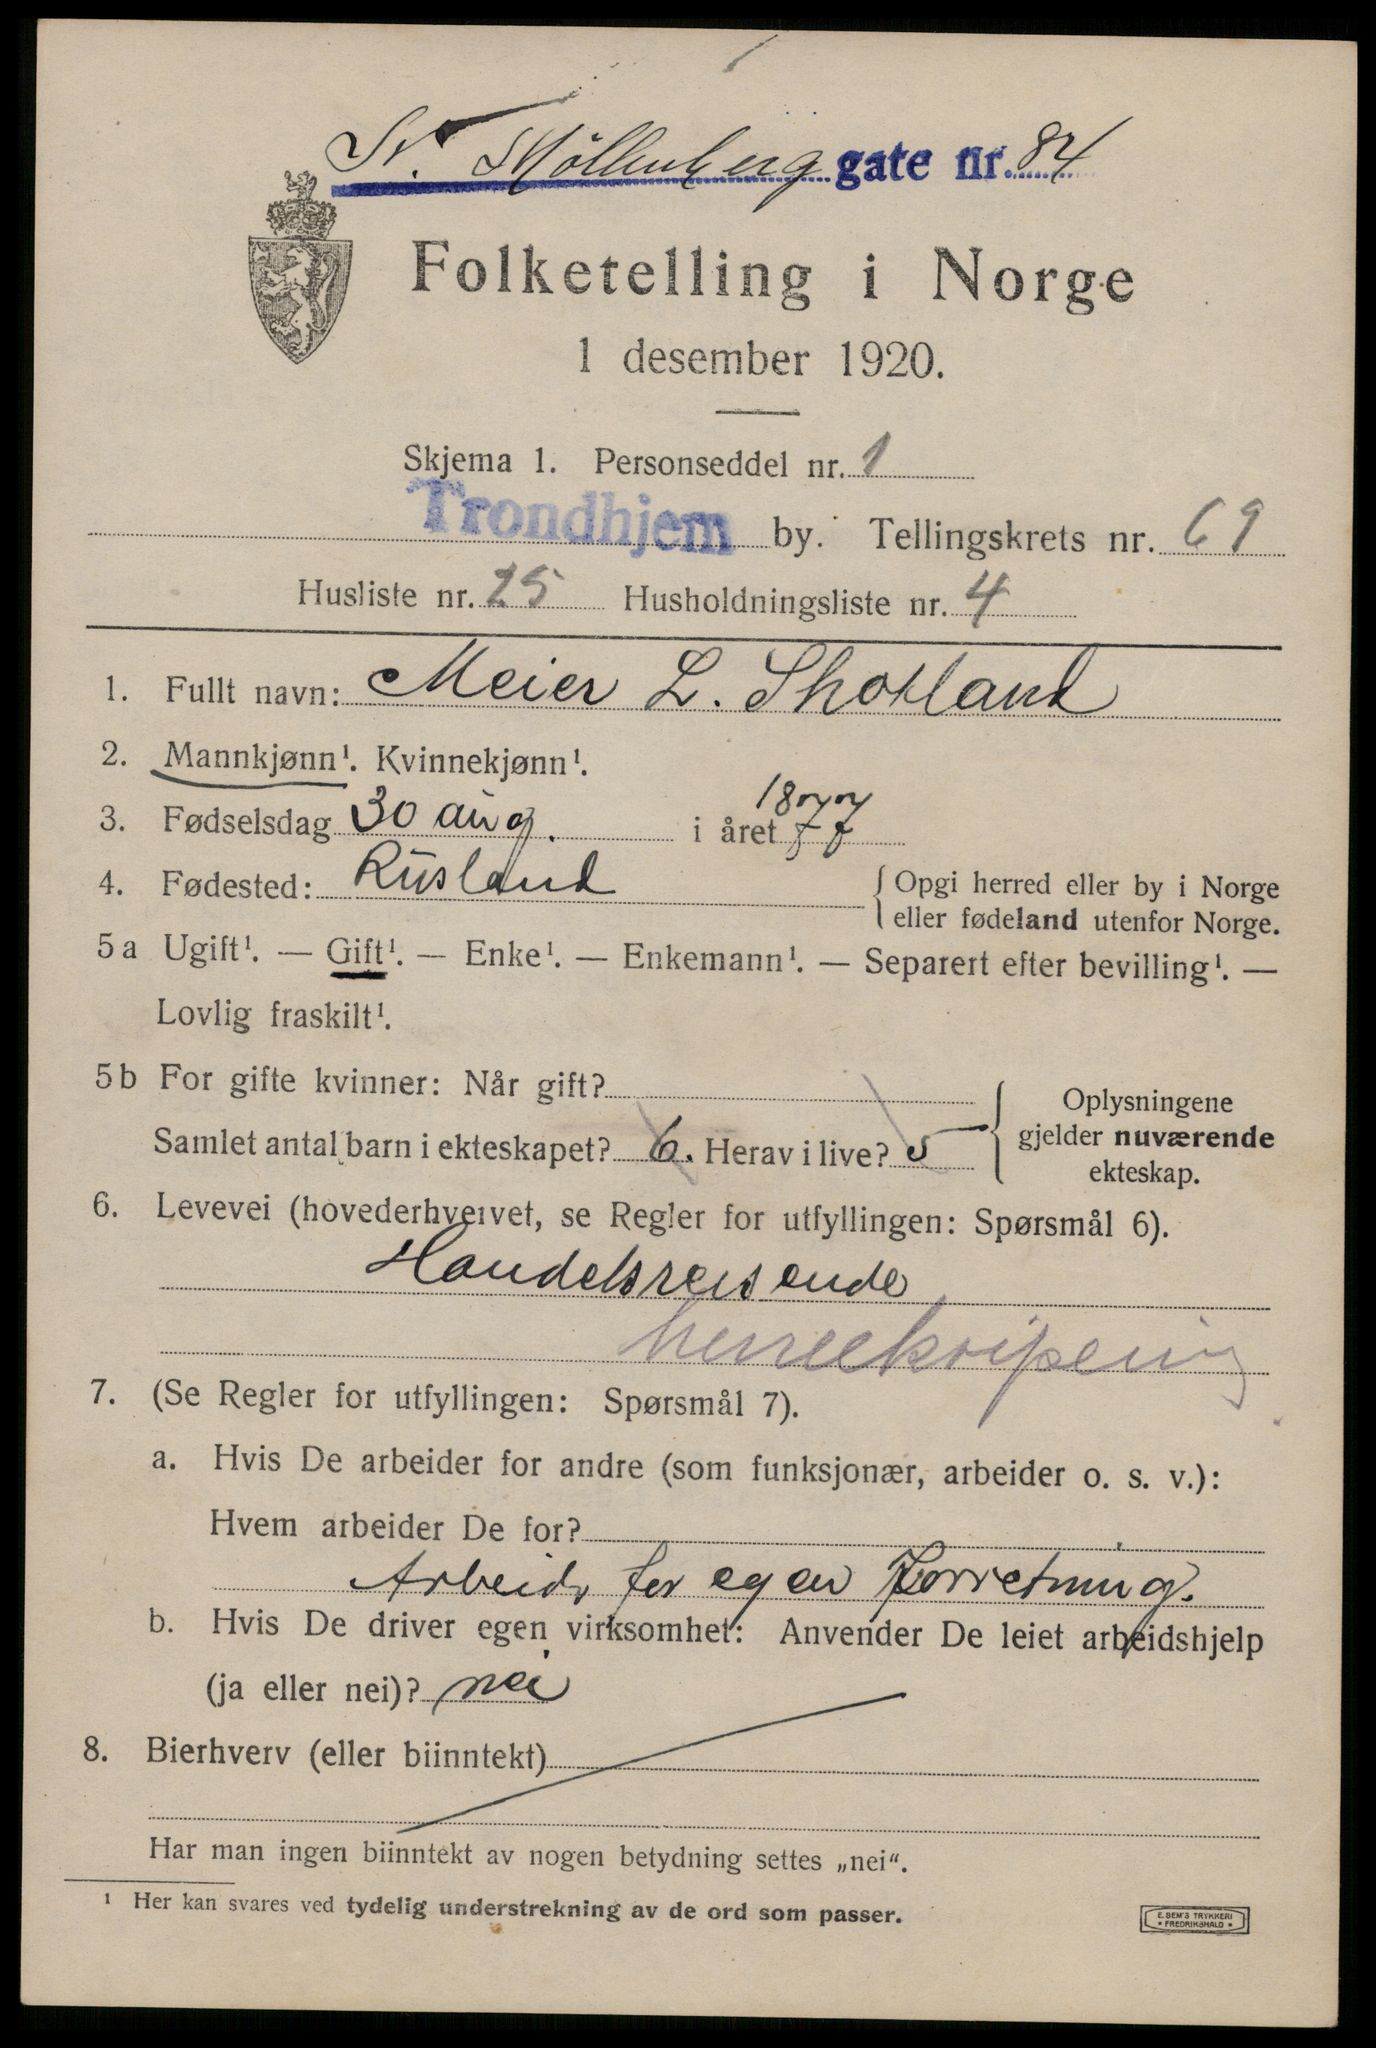 N. Möllenberg gate nr. 84
Folketelling i Norge
1 desember 1920.
Skjema 1. Personseddel nr. 1
Trondhjem by. Tellingskrets nr. 69
Husliste nr. 25 Husholdningsliste nr. 4
1. Fullt navn: Meier L. Shotland
2. Mannkjønn¹. Kvinnekjønn¹.
3. Fødselsdag 30 aug. i året 1877
4. Fødested: Rusland
{Opgi herred eller by i Norge
eller fødeland utenfor Norge.
5a Ugift¹. — Gift¹. — Enke¹. — Enkemann¹. — Separert efter bevilling¹. —
Lovlig fraskilt¹.
5b For gifte kvinner: Når gift?
Samlet antal barn i ekteskapet? 6. Herav i live? 5
{Oplysningene
gjelder nuværende
ekteskap.
6. Levevei (hovederhvervet, se Regler for utfyllingen: Spørsmål 6).
Handelsreisende
7. (Se Regler for utfyllingen: Spørsmål 7).
a. Hvis De arbeider for andre (som funksjonær, arbeider o. s. v.):
Hvem arbeider De for?
Arbeid for egen Forretning.
b. Hvis De driver egen virksomhet: Anvender De leiet arbeidshjelp
(ja eller nei)? nei
8. Bierhverv (eller biinntekt)
Har man ingen biinntekt av nogen betydning settes „nei“.
¹ Her kan svares ved tydelig understrekning av de ord som passer.
E. SEM'S TRYKKERI
* FREDRIKSHALD *